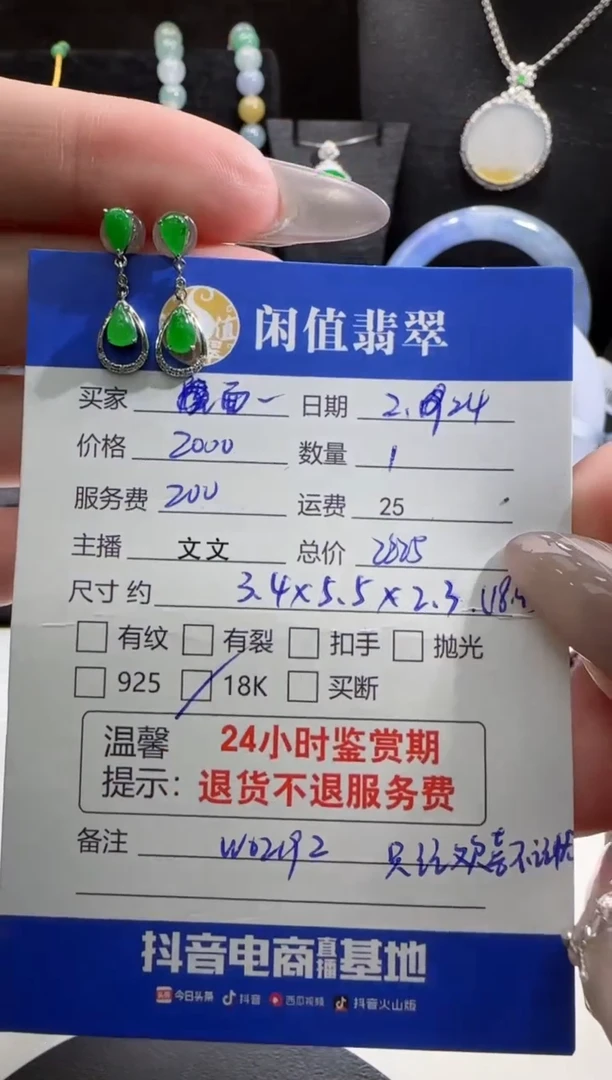 闲值翡翠
买家 面一 日期 2.24
价格 2000 数量 1
服务费 200 运费 25
主播 文文 总价
尺寸 约 3.4×5.5×2.3
有纹 有裂 扣手 抛光
925 18K 买断
温馨提示: 24小时鉴赏期
退货不退服务费
备注
抖音电商直播基地
头条 今日头条 抖音 西瓜视频 抖音火山版